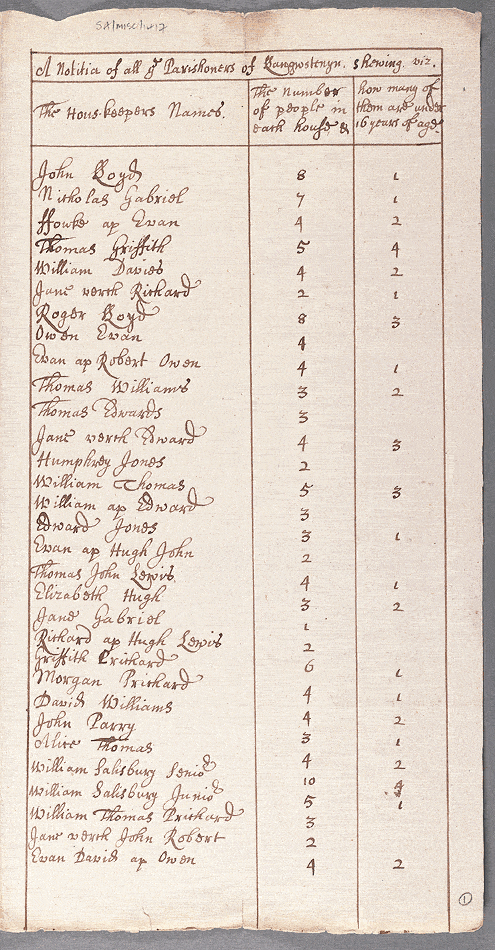 SA/misc/1v/17
A Notitia of all ye Parishoners of Llangwstenyn. shewing. viz.
The Hous-keepers Names. The Number of people in each house & how many of them are under 16 years of age.
John Lloyd 8 1
Nicholas Gabriel 7 1
ffouke ap Evan 4 2
Thomas Griffith 5 4
William Davies 4 2
Jane verch Richard 2 1
Roger Lloyd 8 3
Owen Evan 4
Evan ap Robert Owen 4 1
Thomas Williams 3 2
Thomas Edwards 3
Jane verch Edward 4 3
Humphrey Jones 2
William Thomas 5 3
William ap Edward 3
Edward Jones 3 1
Evan ap Hugh John 2
Thomas John Lewis 4 1
Elizabeth Hugh 3 2
Jane Gabriel 1
Richard ap Hugh Lewis 2
Griffith Prichard 6 1
Morgan Prichard 4 1
David Williams 4 2
John Parry 3 1
Alice Thomas 4 2
William Salisbury Senior 10 4
William Salisbury Junior 5 1
William Thomas Prichard 3
Jane verch John Robert 2
Evan David ap Owen 4 2
1